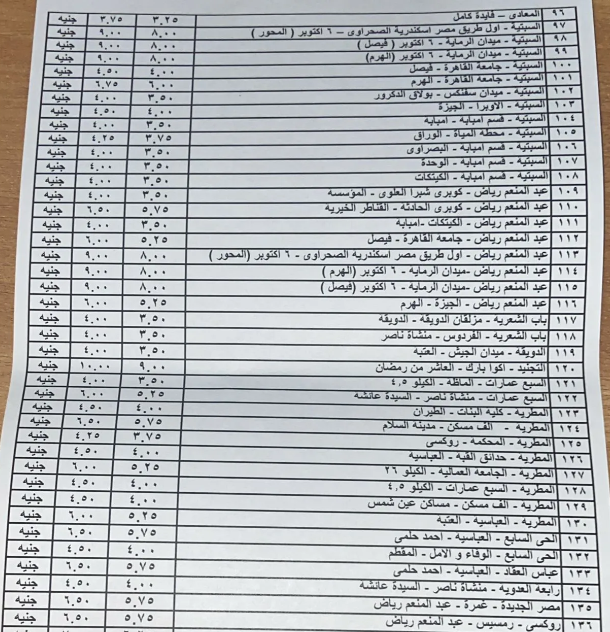 ٩٦ المعادى – فايدة كامل ٣.٢٥ ٣.٧٥ جنيه
٩٧ السبتية - اول طريق مصر اسكندرية الصحراوى – ٦ اكتوبر ( المحور ) ٨.٠٠ ٩.٠٠ جنيه
٩٨ السبتية - ميدان الرماية - ٦ اكتوبر ( فيصل ) ٨.٠٠ ٩.٠٠ جنيه
٩٩ السبتية - ميدان الرماية - ٦ اكتوبر (الهرم) ٨.٠٠ ٩.٠٠ جنيه
١٠٠ السبتية - جامعة القاهرة - فيصل ٤.٠٠ ٤.٥٠ جنيه
١٠١ السبتية - جامعة القاهرة - الهرم ٦.٠٠ ٦.٧٥ جنيه
١٠٢ السبتية - ميدان سفنكس - بولاق الدكرور ٣.٥٠ ٤.٠٠ جنيه
١٠٣ السبتية - الاوبرا - الجيزة ٤.٠٠ ٤.٥٠ جنيه
١٠٤ السبتية - قسم امبابة - امبابة ٣.٥٠ ٤.٠٠ جنيه
١٠٥ السبتية - محطة المياة - الوراق ٣.٧٥ ٤.٢٥ جنيه
١٠٦ السبتية - قسم امبابة - البصراوى ٣.٥٠ ٤.٠٠ جنيه
١٠٧ السبتية - قسم امبابة - الوحدة ٣.٥٠ ٤.٠٠ جنيه
١٠٨ السبتية - قسم امبابة - الكيتكات ٣.٥٠ ٤.٠٠ جنيه
١٠٩ عبد المنعم رياض - كوبرى شبرا العلوى - المؤسسه ٣.٥٠ ٤.٠٠ جنيه
١١٠ عبد المنعم رياض - كوبرى الحادثه - القناطر الخيرية ٥.٧٥ ٦.٥٠ جنيه
١١١ عبد المنعم رياض - الكيتكات -امبابة ٣.٥٠ ٤.٠٠ جنيه
١١٢ عبد المنعم رياض - جامعه القاهرة - فيصل ٥.٢٥ ٦.٠٠ جنيه
١١٣ عبد المنعم رياض - اول طريق مصر اسكندرية الصحراوى - ٦ اكتوبر (المحور ) ٨.٠٠ ٩.٠٠ جنيه
١١٤ عبد المنعم رياض -ميدان الرمايه - ٦ اكتوبر (الهرم ) ٨.٠٠ ٩.٠٠ جنيه
١١٥ عبد المنعم رياض -ميدان الرمايه - ٦ اكتوبر (فيصل ) ٨.٠٠ ٩.٠٠ جنيه
١١٦ عبد المنعم رياض - الجيزة - الهرم ٥.٢٥ ٦.٠٠ جنيه
١١٧ باب الشعريه - مزلقان الدويقه - الدويقه ٣.٥٠ ٤.٠٠ جنيه
١١٨ باب الشعريه - الفردوس - منشاة ناصر ٣.٥٠ ٤.٠٠ جنيه
١١٩ الدويقه - ميدان الجيش - العتبه ٣.٥٠ ٤.٠٠ جنيه
١٢٠ التجنيد - اكوا بارك - العاشر من رمضان ٩.٠٠ ١٠.٠٠ جنيه
١٢١ السبع عمارات - الماظه - الكيلو ٤,٥ ٣.٥٠ ٤.٠٠ جنيه
١٢٢ السبع عمارات - منشاة ناصر - السيدة عائشه ٥.٢٥ ٦.٠٠ جنيه
١٢٣ المطريه - كليه البنات - الطيران ٤.٠٠ ٤.٥٠ جنيه
١٢٤ المطريه - الف مسكن - مدينه السلام ٥.٧٥ ٦.٥٠ جنيه
١٢٥ المطريه - المحكمه - روكسى ٣.٧٥ ٤.٢٥ جنيه
١٢٦ المطريه - حدائق القبه - العباسيه ٤.٠٠ ٤.٥٠ جنيه
١٢٧ المطريه - الجامعه العماليه - الكيلو ٢٦ ٥.٢٥ ٦.٠٠ جنيه
١٢٨ المطريه - السبع عمارات - الكيلو ٤,٥ ٤.٠٠ ٤.٥٠ جنيه
١٢٩ المطريه - الف مسكن - مساكن عين شمس ٤.٠٠ ٤.٥٠ جنيه
١٣٠ المطريه - العباسيه - العتبه ٥.٢٥ ٦.٠٠ جنيه
١٣١ الحى السابع - العباسيه - احمد حلمى ٥.٧٥ ٦.٥٠ جنيه
١٣٢ الحى السابع - الوفاء و الامل - المقطم ٤.٠٠ ٤.٥٠ جنيه
١٣٣ عباس العقاد - العباسيه - احمد حلمى ٥.٧٥ ٦.٥٠ جنيه
١٣٤ رابعه العدويه - منشاة ناصر - السيدة عائشه ٤.٠٠ ٤.٥٠ جنيه
١٣٥ مصر الجديدة - غمرة - عبد المنعم رياض ٥.٧٥ ٦.٥٠ جنيه
١٣٦ روكسى - رمسيس - عبد المنعم رياض